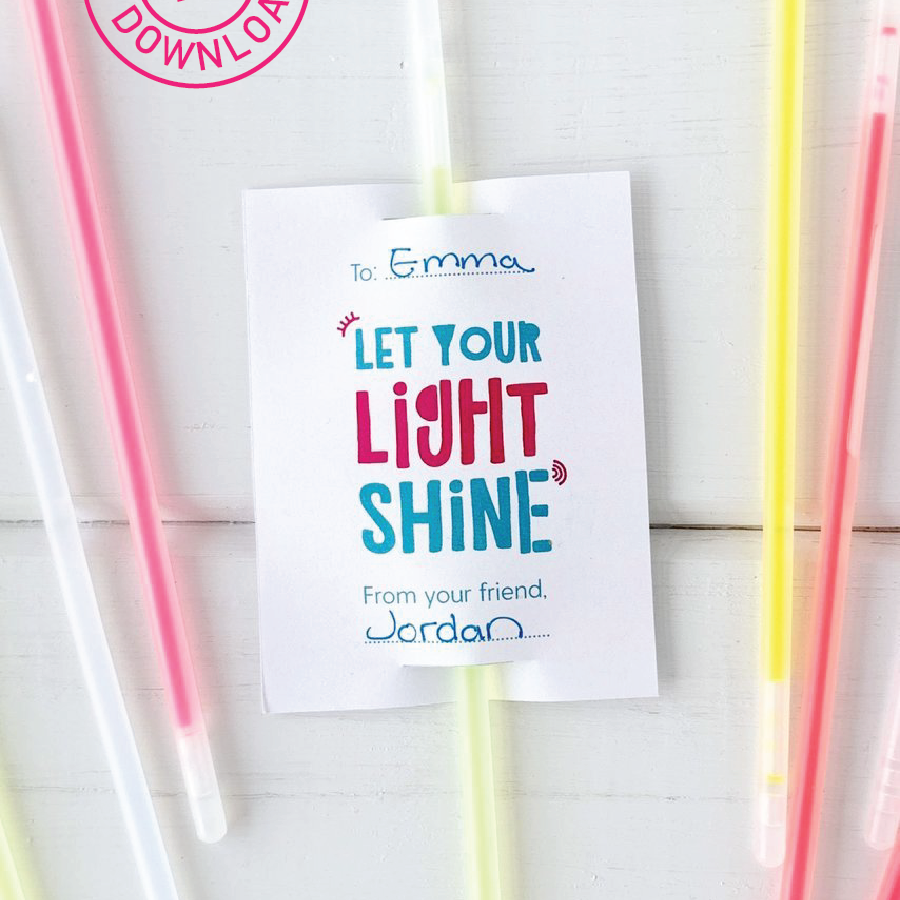 DOWNLOA
To: Emma
LET YOUR
LiGHT
SHiNE
From your friend,
Jordan